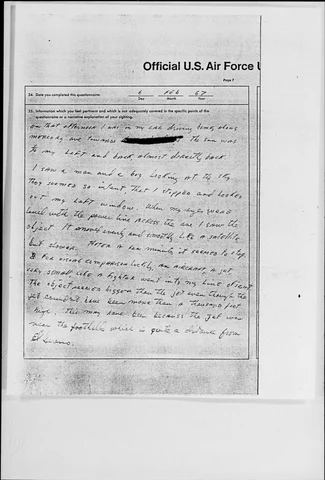 Official U.S. Air Force U
Page 7
24. Date you completed this questionnaire:
6 Feb 67
Day Month Year
25. Information which you feel pertinent and which is not adequately covered in the specific points of the
questionnaire or a narrative explanation of your sighting.
on that afternoon I was in my car driving along
and towards The sun was
to my left and back almost directly back
I saw a man and a boy looking at the sky
They seemed so intent that I stopped and looked
out my left window. When my eyes were
level with the power line across the I saw the
object. It moved and smoothly like a satellite
but slower. After a few minutes it seemed to stop
For visual comparison luckily, an aircraft, a jet
very small like a fighter went into my line of sight
The object seemed bigger than the jet even though the
jet couldn't have been more than a thousand feet
high. This may have been because the jet was
near the foothills which is quite a distance from